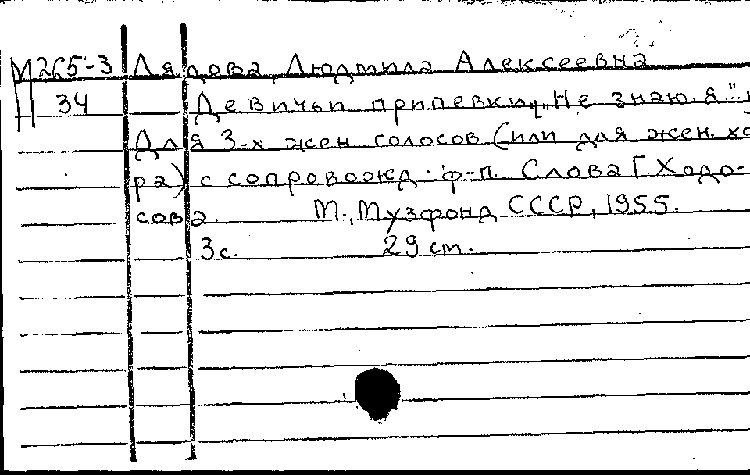 М265-3 Лядова, Людмила Алексеевна
34 Девичьи припевки „Не знаю я"
Для 3-х жен голосов (или для жен. хо
ра) с сопровожд. ф-п. Слова Г Ходо-
сова. М., Музфонд СССР, 1955.
3с. 29 cm.